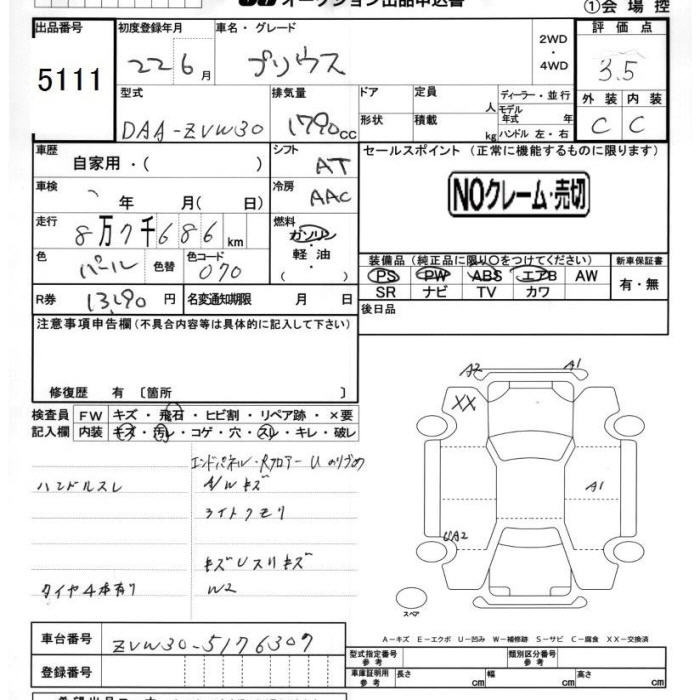 オークション出品申込書 ①会場控
出品番号 初度登録年月 車名・グレード 2WD・4WD 評価点
5111 22 6月 プリウス 3.5
型式 排気量 ドア 定員 人 ディーラー・並行 外装 内装
DAA-ZVW30 1790cc 形状 積載 kg モデル年式 年 ハンドル 左・右 C C
車歴 自家用・( ) シフト AT セールスポイント (正常に機能するものに限ります)
車検 年 月( 日) 冷房 AAC NOクレーム・売切
走行 8万7千686km 燃料 ガソリン・軽油・( )
色 パール 色替 色コード 070
装備品 (純正品に限り○をつけてください) 新車保証書
PS PW ABS エアB AW 有・無
SR ナビ TV カワ
R券 13,190円 名変通知期限 月 日
後日品
注意事項申告欄(不具合内容等は具体的に記入して下さい)
修復歴 有 〔箇所 〕
検査員記入欄 FW キズ・飛石・ヒビ割・リペア跡・×要
内装 キズ・汚レ・コゲ・穴・スレ・キレ・破レ
エンドパネル・Rフロアー U のりづめ
ハンドルスレ A/Wキズ
ライトクモリ
キズUスリキズ
タイヤ4本有り W2
A2 A1
XX
A1
UA2
スペア
A−キズ E−エクボ U−凹み W−補修跡 S−サビ C−腐食 XX−交換済
車台番号 ZVW30-5176307
登録番号
型式指定番号 参考 類別区分番号 参考
車庫証明用 参考 長さ cm 幅 cm 高さ cm